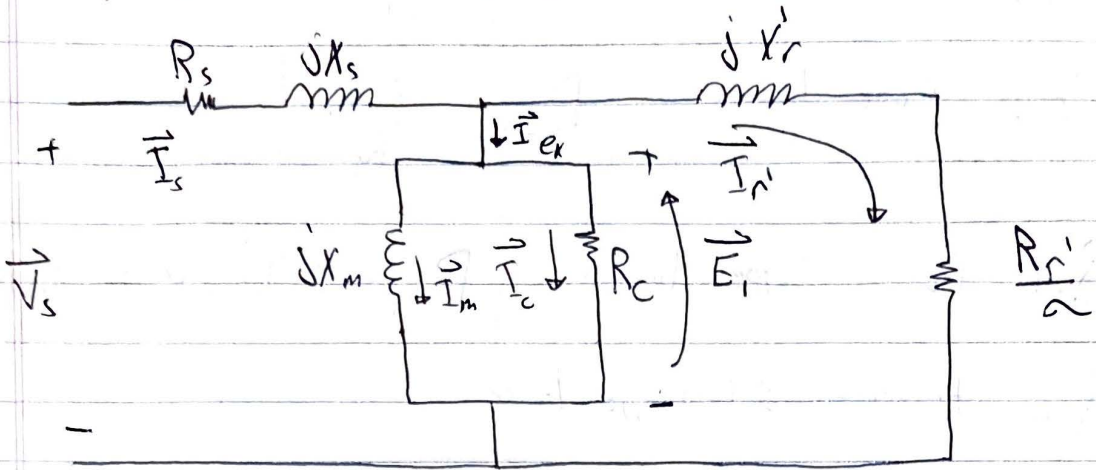 R_s jX_s jX_r'
+ I⃗_s I⃗_ex + I⃗_r'
V⃗_s jX_m I⃗_m I⃗_c R_c E⃗_1 R_r'/s
- -